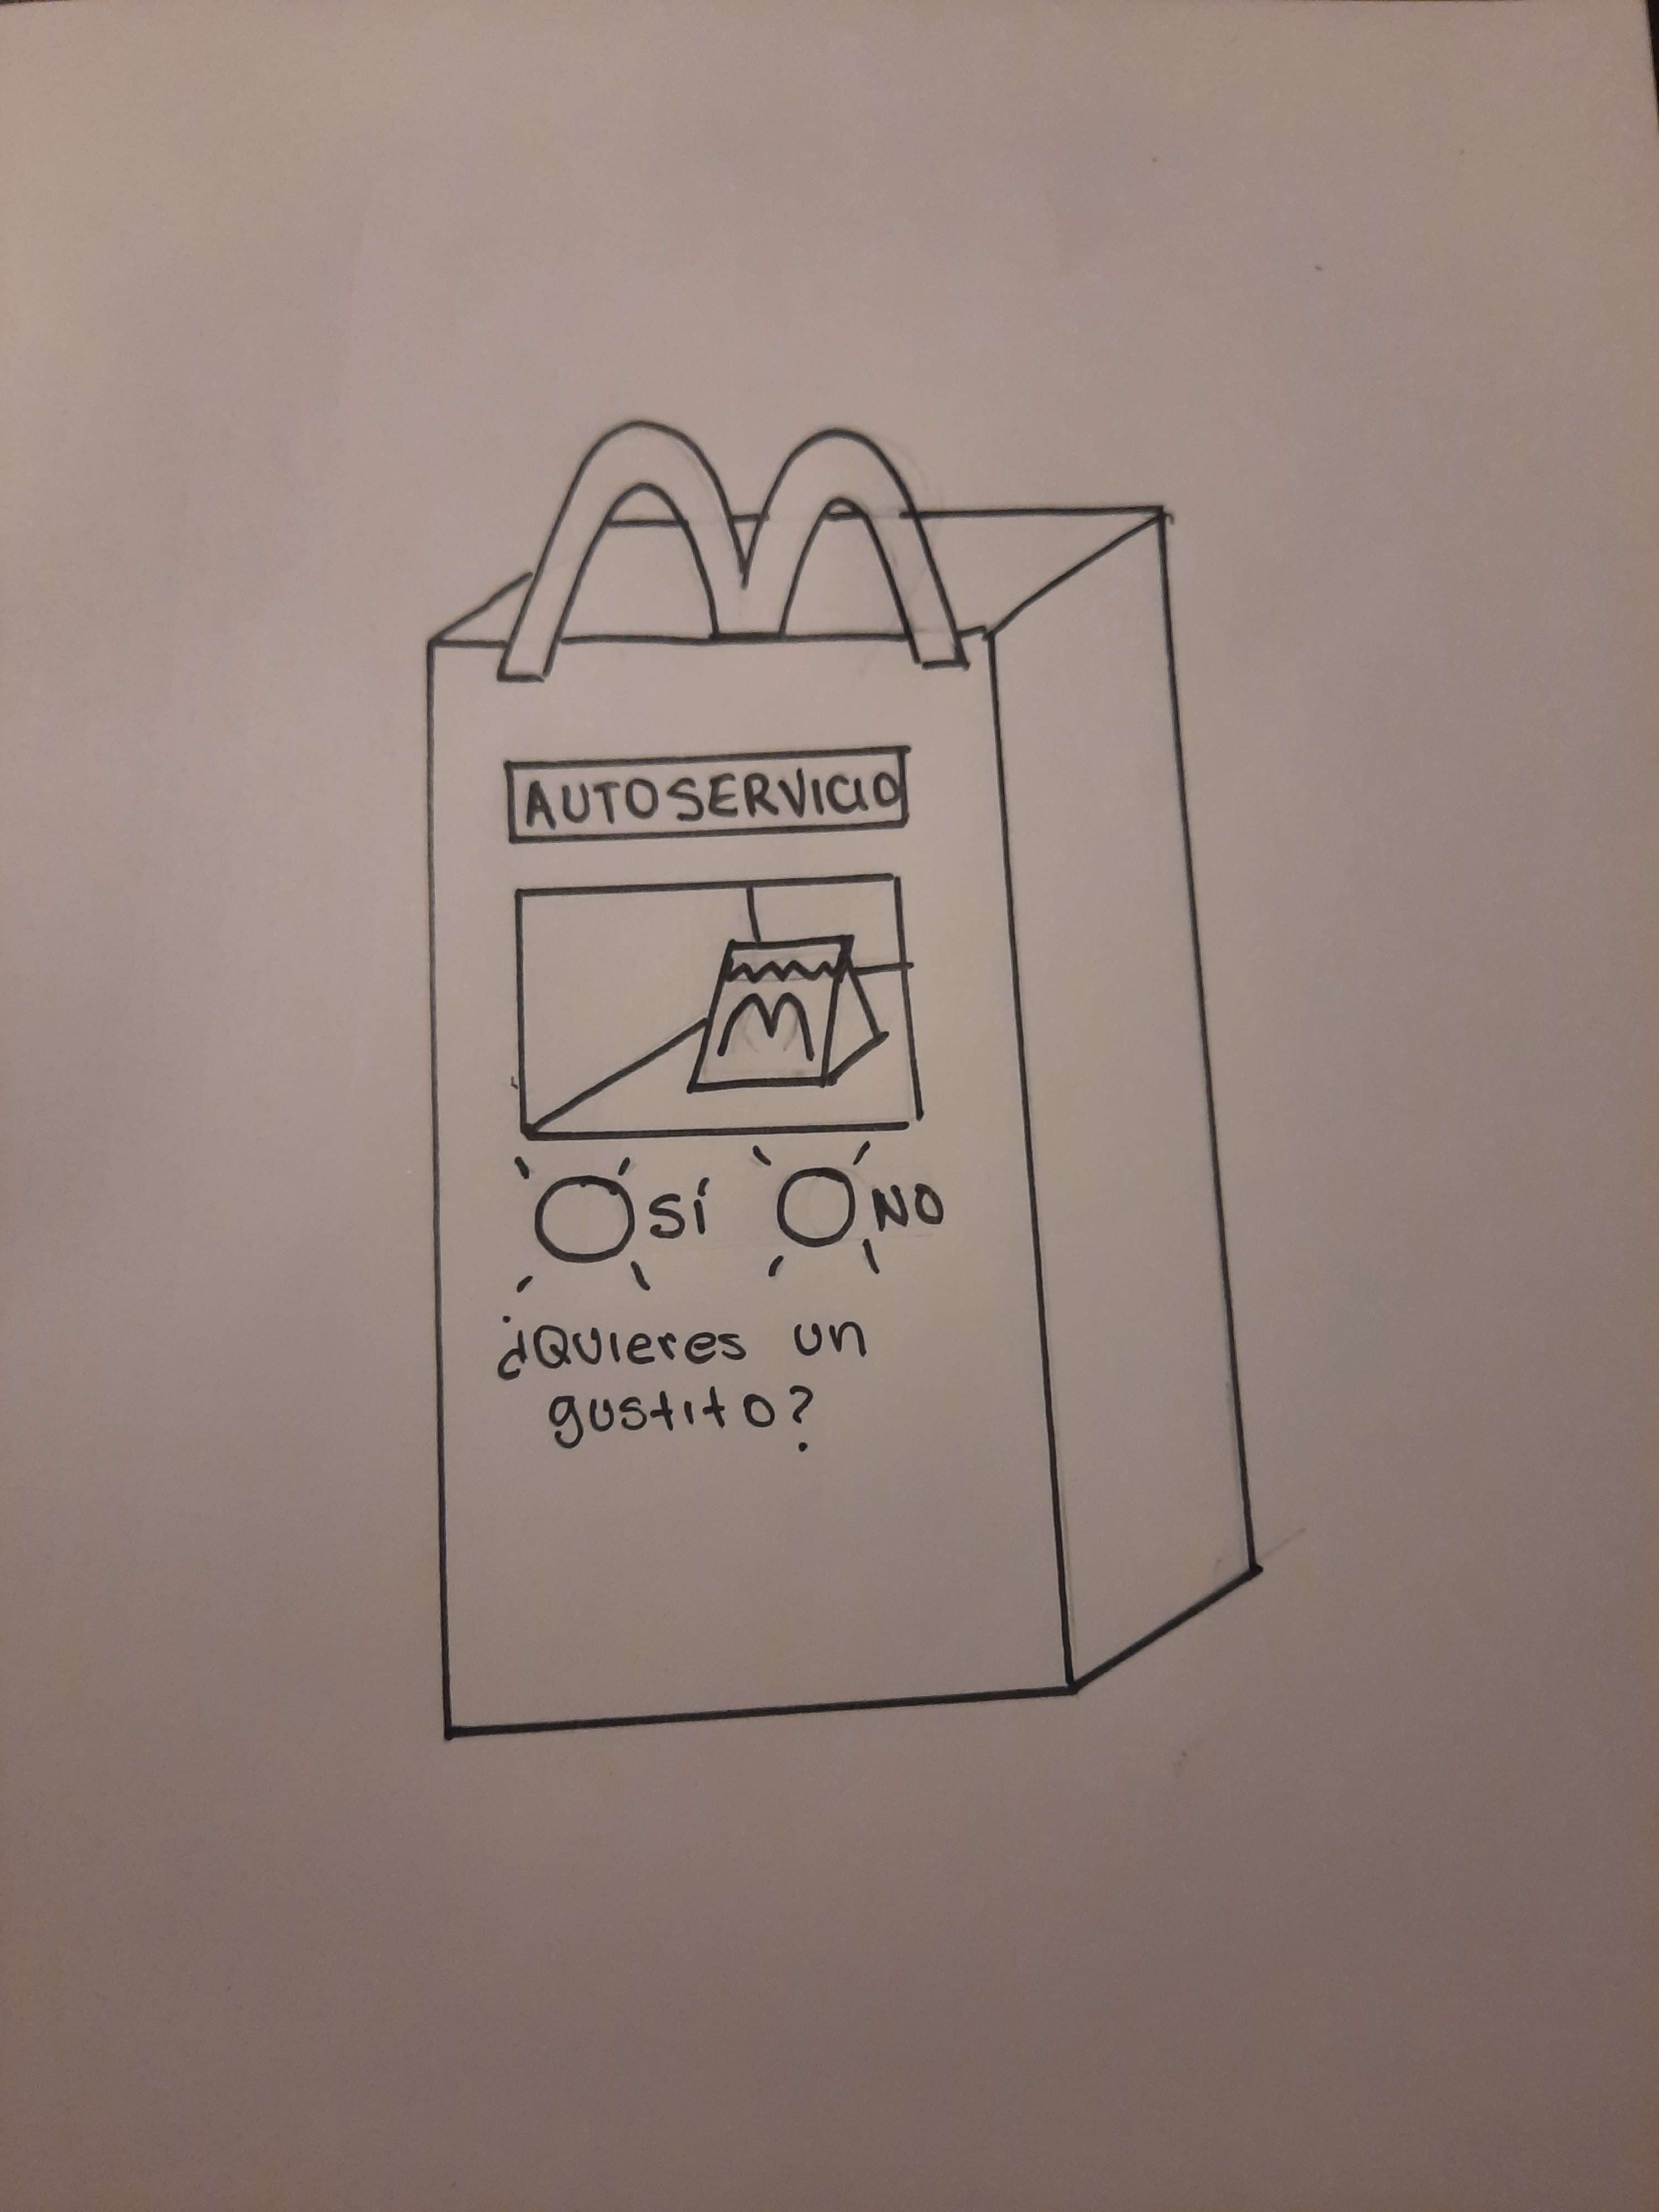 AUTOSERVICIO
M
SÍ NO
¿Quieres un
gustito?